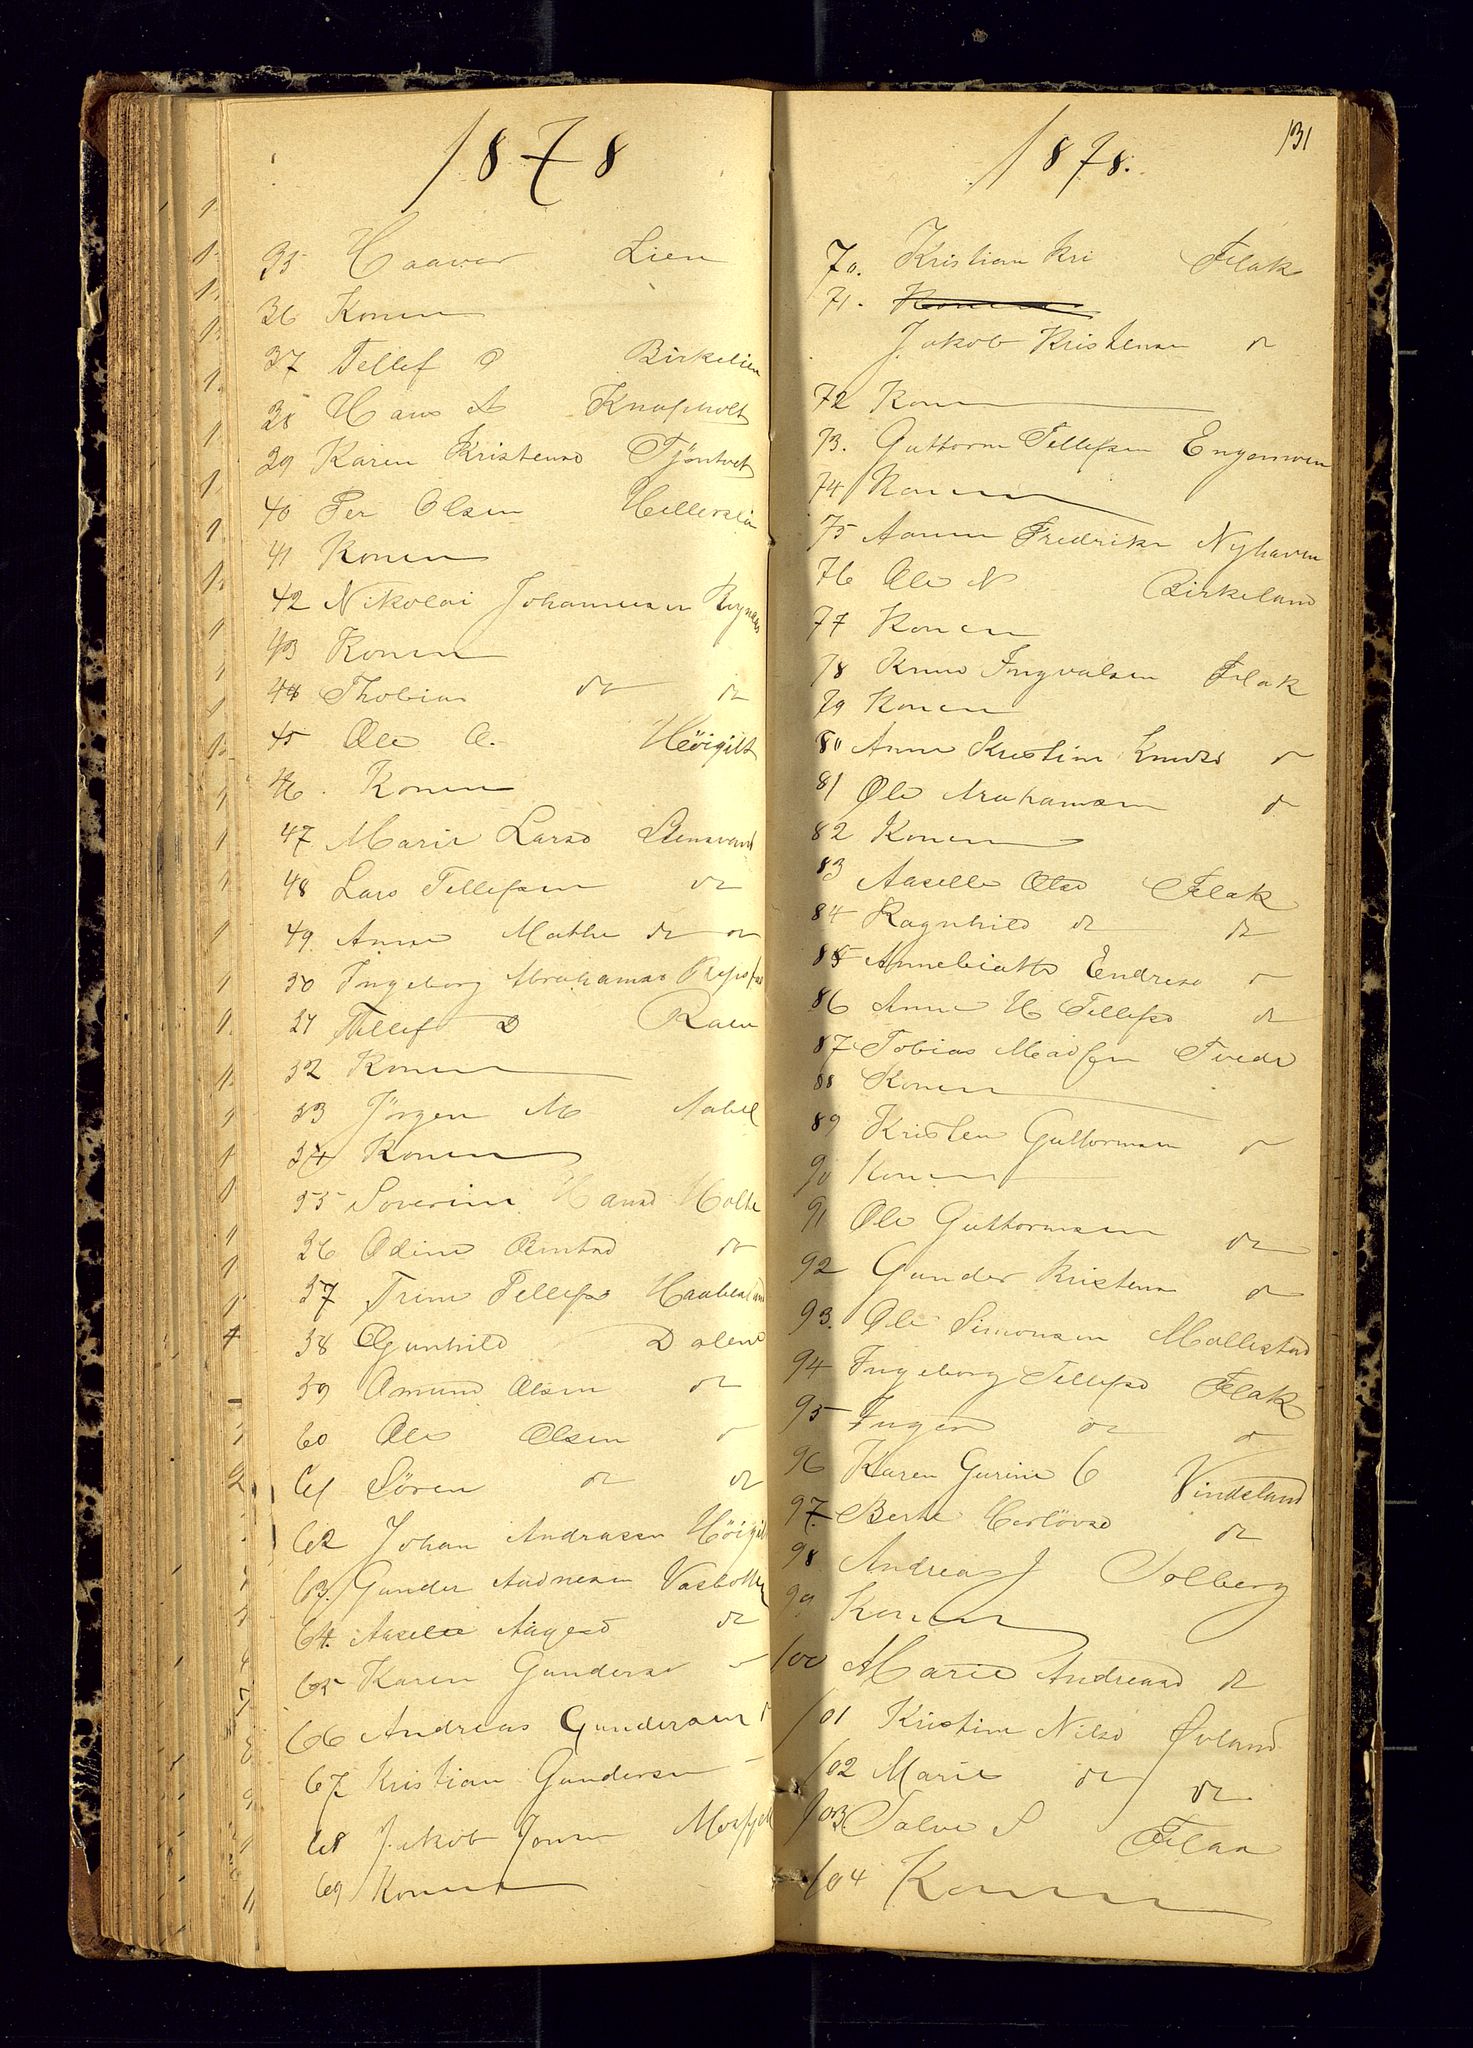 1878
35 Haavor Lien
36 Konen
37 Tellef O Birkelien
38 Hans A Knapholt
39 Karen Kristensd Tjöntvet
40 Per Olsen Hellerslia
41 Konen
42 Nikolai Johannesen
43 Konen
44 Thobias do do
45 Ole O. Höigilt
46. Konen
47 Marie Larsd Stensvand
48 Lars Tellefsen do
49. Anne Mathe do do
50 Ingeborg Abrahamsd
51 Tellef D Raen
52 Konen
53 Jörgen M Aabel
54 Konen
55 Severine Hansd Holte
56 Odine do
57 Trine Tellefsd
58 Gunhild Dalene
59 Amund Olsen do
60 Ole Olsen do
61 Sören do do
62 Johan Andrasen Höigilt
63. Gunder Audnesen
64. Aaselie Aagesd do
65 Karen Gundersd
66 Andreas Gundersen do
67 Kristian Gundersen
68 Jakob Jonsen
69 Konen
131
1878.
70. Kristian Kri Flak
71. Konen
Jakob Kristensen do
72 Konen
73. Guttorm Tellefsen Engemoen
74 Konen
75 Anne Fredrike Nyhaven
76 Ole N Birkeland
77 Konen
78 Knud Ingvalsen Flak
79 Konen
80 Anne Kristine Knudsd do
81 Ole Arahamsen do
82 Konen
83 Aaselle Olsd Flak
84 Ragnhild do do
85 Annebiatte Endresd do
86 Anne H Tellefsd do
87 Tobias Madsen Tvede
88 Konen
89 Kristen Guttormsen do
90 Konen
91 Ole Guttormsen do
92 Gunder Kristensen do
93. Ole Simonsen Mollestad
94 Ingeborg Tellefsd Flak
95 Inger do do
96 Karen Gurine Vindsland
97. Berte Herlövsd do
98 Andreas J Solberg
99 Konen
100 Marie Andreasd do
101 Kristine Nilsd Övland
102 Marie do do
103 Salve S Flaa
104 Konen